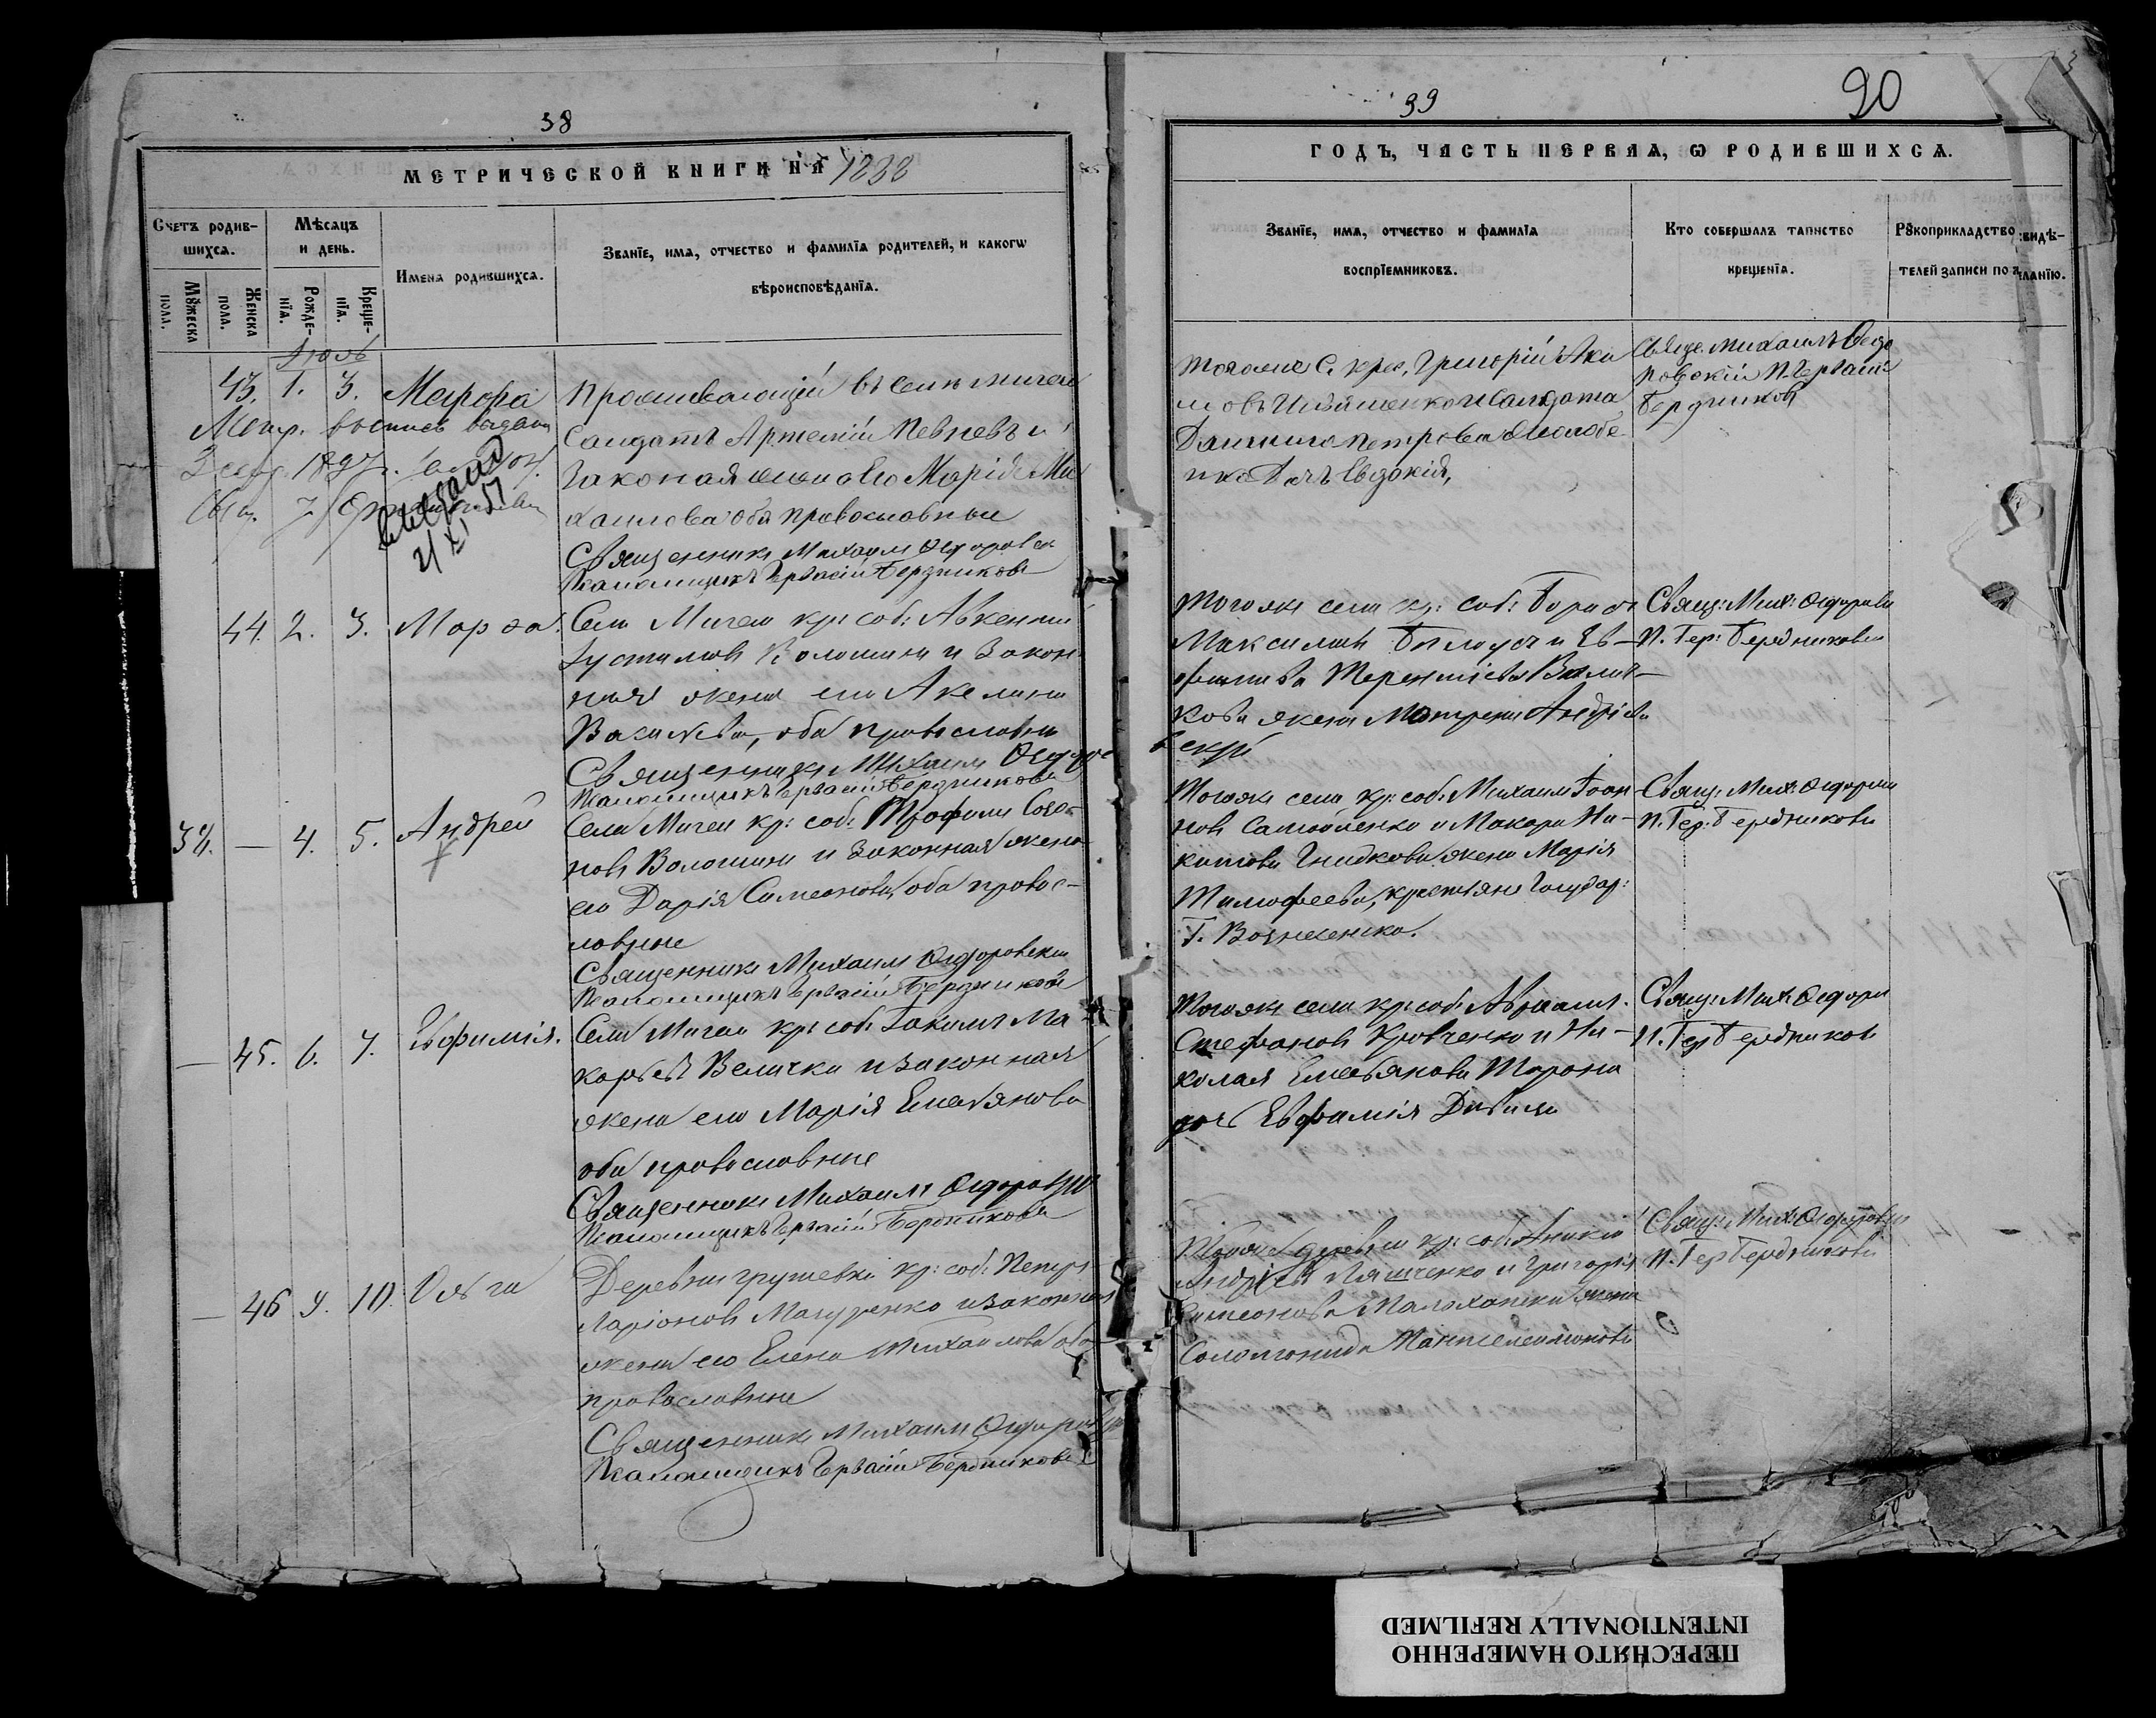 38
МЕТРИЧЕСКОЙ КНИГИ НА 1888
Счетъ родившихся.
Мѣсяцъ и день.
Имена родившихся.
Званїе, имя, отчество и фамилїа родителей, и какогѡ
вѣроисповѣданїа.
Мꙋжеска пола.
Женска пола.
Рожденїа.
Крещенїа.
Іюль
43. 1. 3. Мавра
Проживающій въ селѣ Мигеи
Солдатъ Артемій Певневъ и
законная жена его Марія Ми
хаилова оба православные
Священникъ Михаилъ Федоровск
Псаломщикъ Герасій Бердниковъ
Метр. выпись выдана
1897 г.
Свящ.
21 XI 51
44. 2. 3. Марѳа.
Села Мигеи кр: соб: Авксентій
Іустиновъ Волошинъ и закон
ная жена его Акелина
Василева, оба православны
Священникъ Михаилъ Федоро
Псаломщикъ Герасій Бердниковъ
34. — 4. 5. Андрей
Села Мигеи кр: соб: Трофимъ Созо-
новъ Волошинъ и законная жена
его Дарія Симеонова, оба правос-
лавные
Священникъ Михаилъ Федоровскій
Псаломщикъ Герасій Бердниковъ
— 45. 6. 7. Евфимія.
Села Мигеи кр: соб: Іакимъ Ма
карьевъ Величко и законная
жена его Марія Емельянова
оба православные
Священникъ Михаилъ Федоровскій
Псаломщикъ Герасій Бердниковъ
— 46 9. 10. Ольга
Деревни Грушевки кр: соб: Петръ
Ларіоновъ Мазуренко и законная
жена его Елена Михаилова оба
православные
Священникъ Михаилъ Федоровскій
Псаломщикъ Герасій Бердниковъ
39
90
ГОДЪ, ЧАСТЬ ПЕРВАЯ, Ѡ РОДИВШИХСЯ.
Званїе, имя, отчество и фамилїа
воспрїемниковъ.
Кто совершалъ таинство
крещенїа.
Рꙋкоприкладство
телей записи по
Тогоже с. крес. Григорій Аки
мовъ и солдата
Даниила Петрова
Евдокія,
Свящ. Михаилъ Федо
ровскій П. Герасій
Бердниковъ
Тогоже села кр: соб: Борисъ
Максимовъ Билоусъ и Ев-
Терентіева Волош-
кова жена Матрена Андрієва
Свящ: Мих: Федоровск
П. Гер: Бердниковъ
Тогоже села кр: соб: Михаилъ Іоан
новъ Самойленко и Макара Ни-
китова Гнидкова жена Марія
Тимофеева, крестьяне Государ:
Г. Вознесенска.
Свящ: Мих: Федоровск
П. Гер: Бердниковъ
Тогоже села кр: соб: Авраамъ
Стефановъ Кравченко и Ни-
колая Емельянова Тарана
дочь Евфимія Дѣвица
Свящ: Мих: Федоро
П. Гер Бердниковъ
Тойже деревни кр: соб: Аникій
Андріевъ Ляшченко и Григорія
Симеонова Малаховска жена
Соломонида Пантелеимонова
Свящ: Мих: Федоровск
П. Гер Бердниковъ
ПЕРЕСНЯТО НАМЕРЕННО
INTENTIONALLY REFILMED